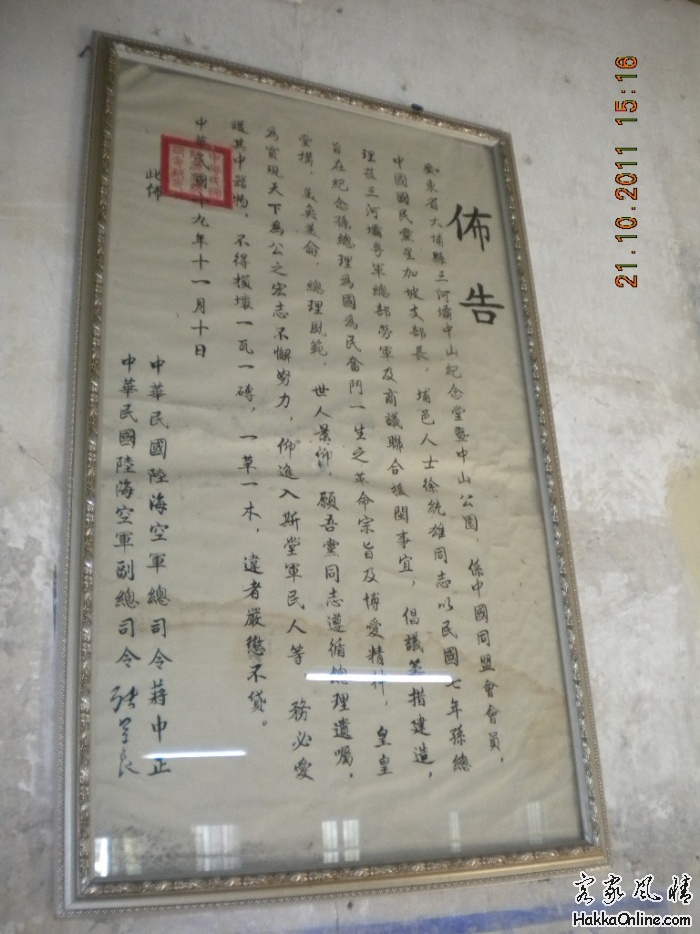 佈告
廣東省大埔縣三河壩中山紀念堂暨中山公園，係中國同盟會會員，
中國國民黨星加坡支部長，埔邑人士徐統雄同志以民國七年孫總
理蒞三河壩粵軍總部勞軍及商議聯合援閩事宜，倡議籌措建造，
旨在紀念孫總理為國為民奮鬥一生之革命宗旨及博愛精神，皇皇
堂構，美奐美侖，總理風範，世人景仰，願吾黨同志遵循總理遺囑，
為實現天下為公之宏志不懈努力，仰進入斯堂軍民人等 務必愛
護其中器物，不得損壞一瓦一磚，一草一木，違者嚴懲不貸。
此佈
中華民國十九年十一月十日
中華民國陸海空軍總司令蔣中正
中華民國陸海空軍副總司令 張學良
21.10.2011 15:16
客家風情
HakkaOnline.com